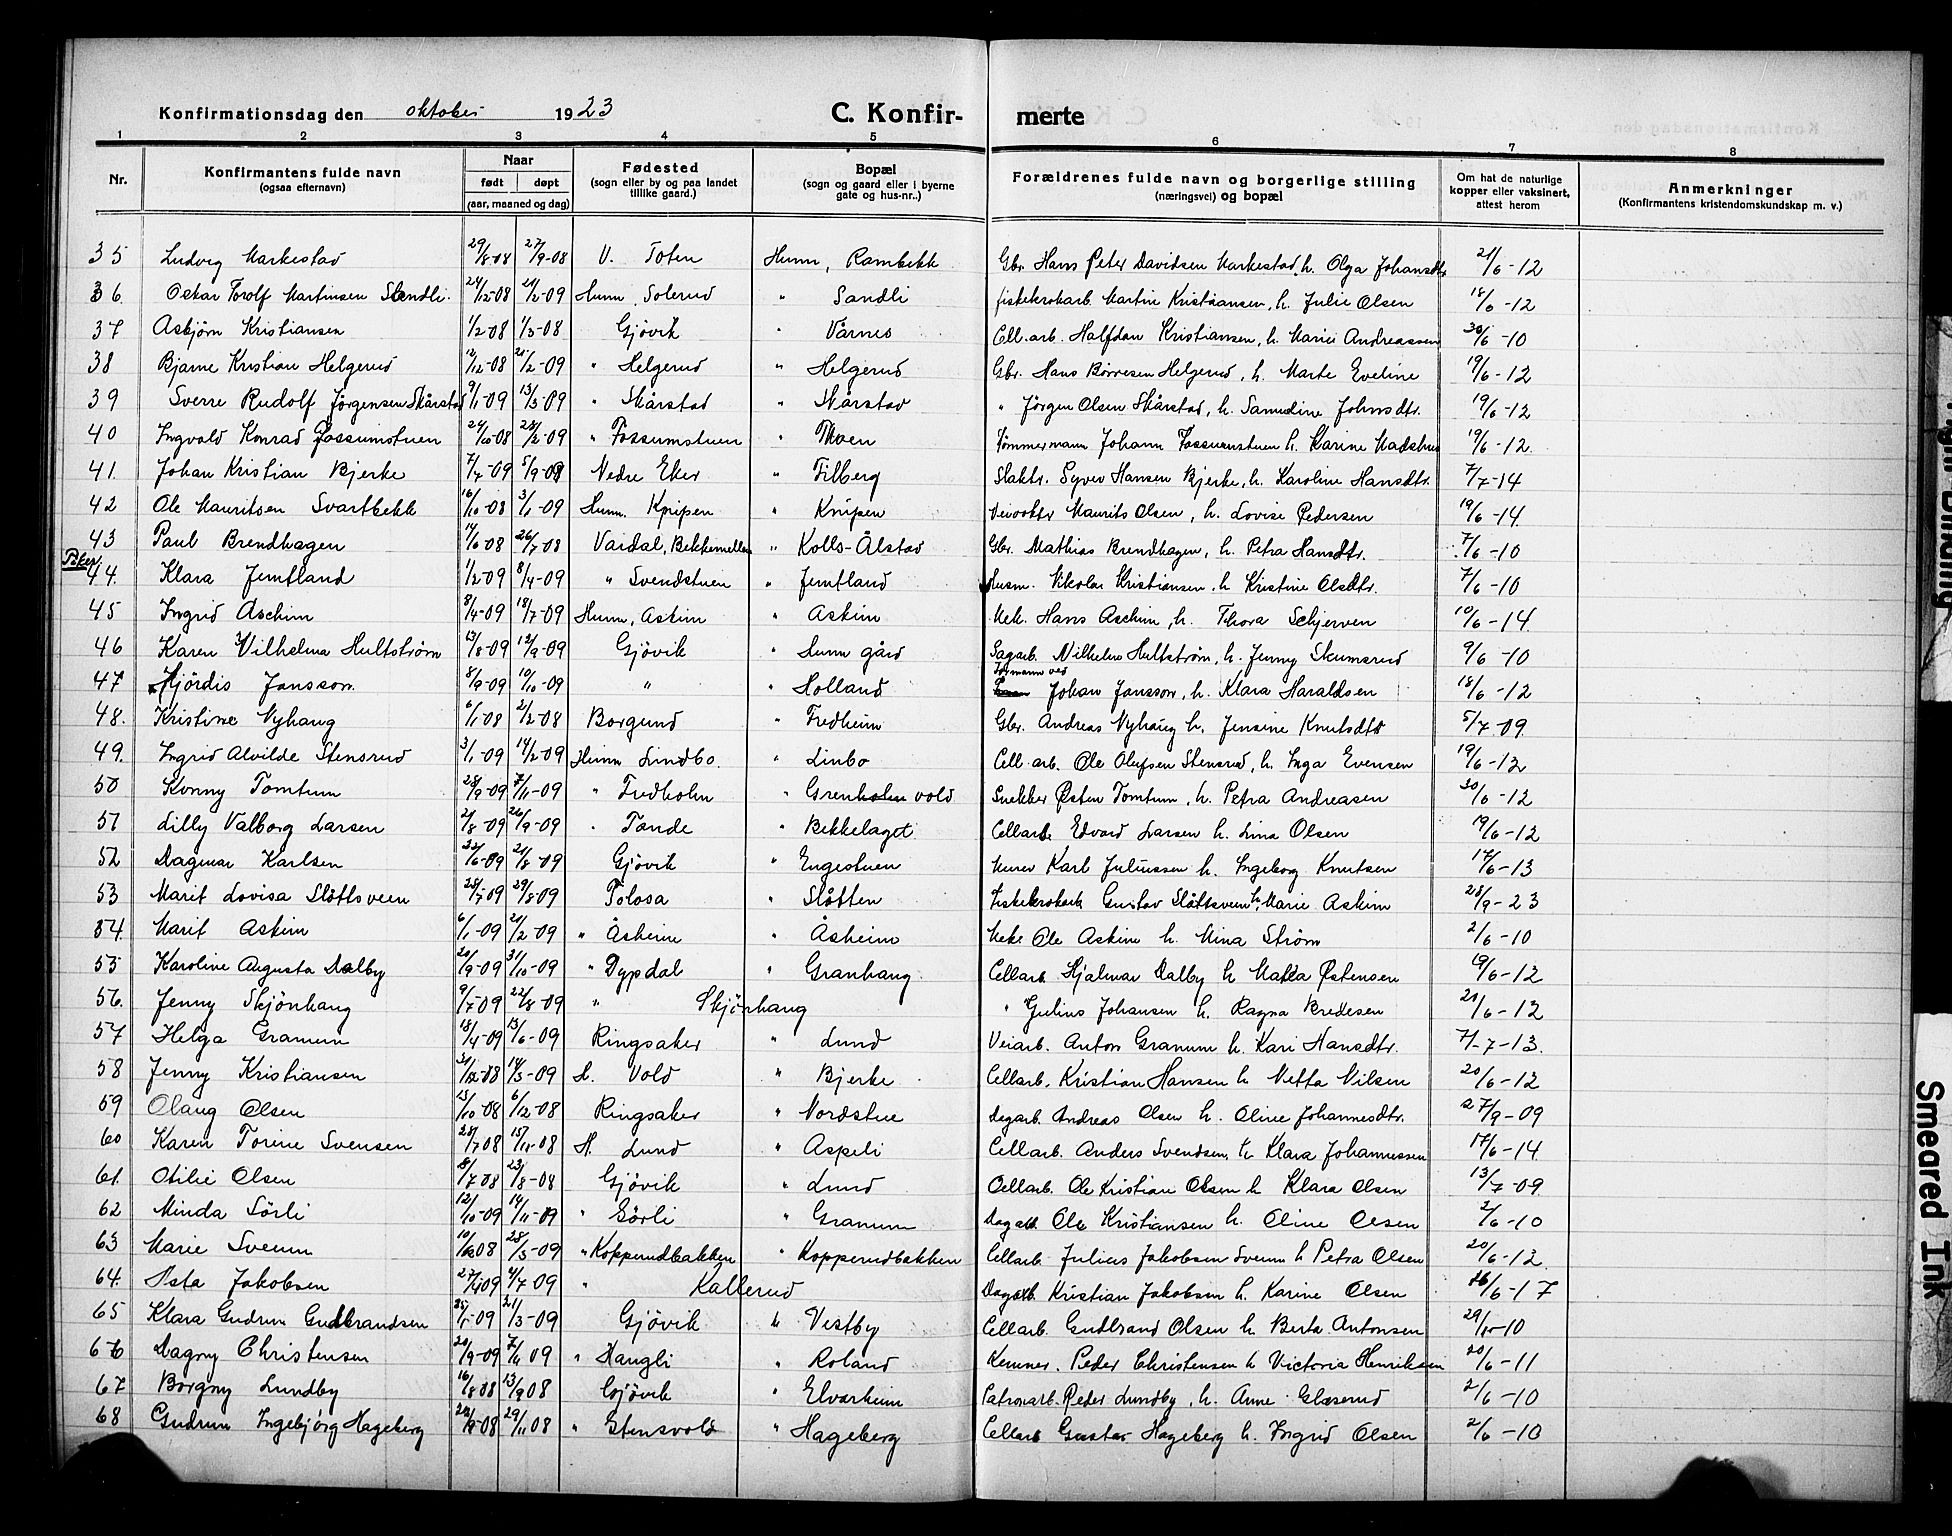 Konfirmationsdag den oktober 1923 C. Konfir- merte
1 2 3 4 5 6 7 8
Nr. Konfirmantens fulde navn (ogsaa efternavn) Naar født døpt (aar, maaned og dag) Fødested (sogn eller by og paa landet tillike gaard.) Bopæl (sogn og gaard eller i byerne gate og hus-nr..) Forældrenes fulde navn og borgerlige stilling (næringsvei) og bopæl Om hat de naturlige kopper eller vaksinert, attest herom Anmerkninger (Konfirmantens kristendomskundskap m. v.)
35 Ludvig Markestad 29/8-08 27/9-08 V. Toten Hunn, Rambekk Gbr. Hans Peter Davidsen Markestad, h. Olga Johansdtr 21/6-12
36. Oskar Torolf Martinsen Sandli. 24/12-08 21/2-09 Hunn, Solerud " Sandli fiskekrokarb. Martin Kristiansen, h. Julie Olsen 18/6-12
37 Asbjörn Kristiansen 1/2-08 1/3-08 Gjövik " Vårnes Cell.arb. Halfdan Kristiansen, h. Marie Andreassen 30/6-10
38 Bjarne Kristian Helgerud 12/12-08 21/2-09 " Helgerud " Helgerud Gbr. Hans Börresen Helgerud, h. Marte Eveline 19/6-12
39 Sverre Rudolf Jörgensen Skårstad 9/1-09 13/3-09 " Skårstad " Skårstad " Jörgen Olsen Skårstad, h. Samudine Johnsdtr. 19/6-12
40 Ingvald Konrad Fossumstuen 24/10-08 28/2-09 " Fossumstuen " Thoen Tömmermann Johann Fossumstuen h. Karine Madsdtr 19/6-12
41. Johan Kristian Bjerke 7/7-09 5/9-09 Nedre Eker " Filberg Slaktr. Syver Hansen Bjerke, h. Karoline Hansdtr. 7/7-14
42 Ole Mauritsen Svartbekk 16/10-08 3/1-09 Hunn. Knipen " Knipen Veivokter Maurits Olsen, h. Lovise Pedersen 19/6-14.
43 Paul Brendhagen 14/6-08 26/7-08 Vardal, Bekkemellem " Kolls-Ålstad Gbr. Mathias Brendhagen, h. Petra Hansdtr. 7/6-10
Piker
44. Klara Jemtland 1/2-09 8/4-09 " Svendstuen " Jemtland Husm. Nikolai Kristiansen, h Kristine Olsdtr. 7/6-10
45 Ingrid Aschim 8/4-09 18/7-09 Hunn, Askim " Askim Mek. Hans Aschim, h. Thora Schjerven 10/6-14.
46 Karen Vilhelma Hultström 13/8-09 12/9-09 Gjövik " Hunn gård Sagarb. Vilhelm Hultström, h. Jenny Skumsrud 9/6-10
47 Hjördis Jansson. 8/9-09 10/10-09 " " Holland Johan Jansson, h. Klara Haraldsen 18/6-12
48. Kristine Nyhaug 6/1-08 2/2-08 Borgund " Fredheim Gbr. Andreas Nyhaug h. Jensine Knutsdtr 5/7-09.
49. Ingrid Alvilde Stensrud 3/1-09 14/2-09 Hunn Lindbo. " Linbo Cell.arb. Ole Olufsen Stensrud, h. Inga Evensen 19/6-12
50 Konny Tomtum 28/9-09 7/11-09 " Fredholm " Grenholm vold Snekker Østen Tomtum, h. Petra Andreasen 30/6-12
51 Lilly Valborg Larsen 2/8-09 26/9-09 " Tande " Bekkelaget Cellarb. Edvard Larsen h. Lina Olsen 19/6-12
52 Dagmar Karlsen 22/6-09 21/8-09 Gjövik " Engestuen Murer Karl Juliussen h. Ingeborg Knutsen 17/6-13
53 Marit Lovisa Slåttsveen 28/7-09 29/8-09 Tolosa " Slåtten Fiskekrokarb Gustav Slåttsveen h. Marie Askim 28/9-23
54. Marit Askim 6/1-09 21/2-09 " Åsheim " Åsheim Mek. Ole Askim h. Mina Ström 2/6-10
55 Karoline Augusta Dalby 20/9-09 31/10-09 " Dypdal " Granhaug. Cellarb. Hjalmar Dalby h. Østensen 19/6-12
56. Jenny Skjönhaug 9/7-09 22/8-09 " Skjönhaug " Julius Johansen h. Ragna Bredesen 20/6-12
57 Helga Granum 18/4-09 13/6-09 Ringsaker " Lund Veiarb. Anton Granum h. Kari Hansdtr. 7-7-13.
58 Jenny Kristiansen 31/12-08 14/3-09 H. Vold " Bjerke Cellarb. Kristian Hansen h Netta Nilsen 20/6-12
59 Olaug Olsen 13/10-08 6/12-08 Ringsaker " Nordstue Dagarb. Andreas Olsen h. Oline Johannesdtr. 27/9-09
60 Karen Torine Svensen 28/7-08 15/11-08 H. Lund " Aspeli Cellarb. Anders Svendsen, h Klara Johannessen 17/6-14
61. Otilie Olsen 8/7-08 23/8-08 Gjövik " Lund Cellarb. Ole Kristian Olsen h Klara Olsen 13/7-09.
62 Minda Sörli 12/10-09 14/11-09 " Sörli " Granum Dagarb Ole Kristiansen h. Oline Olsen 2/6-10
63 Marie Sveum 10/12 08 28/3-09 " Koppernudbakken " Kopperudbakken Cellarb. Julius Jakobsen Sveum h Petra Olsen 20/6-12.
64. Asta Jakobsen 27/4 09 4/7-09 " Kallerud Dagarb. Kristian Jakobsen h. Karine Olsen 26/6-17
65 Klara Gudrun Gudbrandsen 25/1-09 21/3-09 Gjövik " Vestby Cellarb. Gudbrand Olsen h Berta Antonsen 29/11-10
66 Dagny Christensen 20/9-09 7/11 09 " Haugli " Roland Kemner. Peder Christensen h Victoria Henriksen 20/6-11
67 Borgny Lundby 16/8 08 13/9 08 Gjövik " Elvarheim Patronarb. Peder Lundby, h. Anne Glæserud 2/6-10
68 Gudrun Ingebjörg Hageberg 28/9-08 29/11 08 " Stensvold " Hageberg Cellarb Gustav Hageberg h. Ingrid Olsen 2/6-10
Tight Binding
Smeared Ink